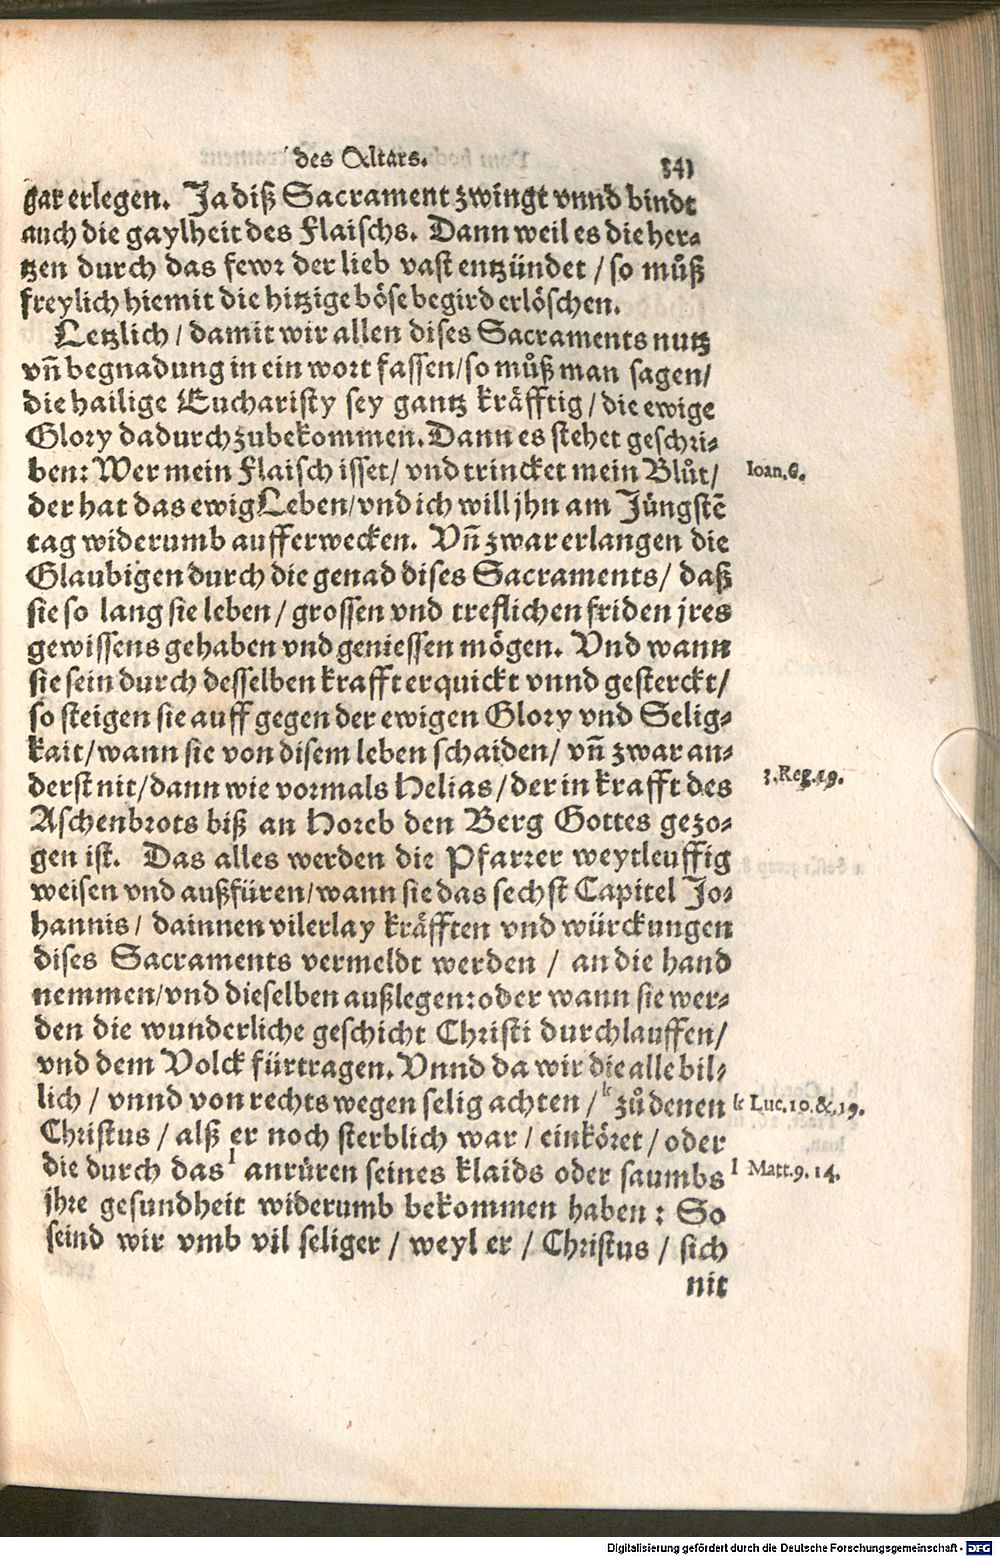 des Altars.
341
gar erlegen. Ja diß Sacrament zwingt vnnd bindt
auch die gaylheit des Flaischs. Dann weil es die her⸗
tzen durch das fewr der lieb vast entzündet / so muͦß
freylich hiemit die hitzige böse begird erlöschen.
Letzlich / damit wir allen dises Sacraments nutz
vñ begnadung in ein wort fassen/so muͦß man sagen/
die hailige Eucharisty sey gantz kräfftig / die ewige
Glory dadurch zubekommen. Dann es stehet geschri⸗
ben: Wer mein Flaisch isset/ vnd trincket mein Bluͦt/
Ioan. 6.
der hat das ewig Leben/vnd ich will jhn am Jüngstẽ
tag widerumb aufferwecken. Vñ zwar erlangen die
Glaubigen durch die genad dises Sacraments/ daß
sie so lang sie leben / grossen vnd treflichen friden jres
gewissens gehaben vnd geniessen mögen. Vnd wann
sie sein durch desselben krafft erquickt vnnd gesterckt/
so steigen sie auff gegen der ewigen Glory vnd Selig⸗
kait/wann sie von disem leben schaiden/ vñ zwar an⸗
derst nit/dann wie vormals Helias/der in krafft des
3. Reg. 19.
Aschenbrots biß an Horeb den Berg Gottes gezo⸗
gen ist. Das alles werden die Pfarrer weytleuffig
weisen vnd außfüren/wann sie das sechst Capitel Jo⸗
hannis / dainnen vilerlay kräfften vnd würckungen
dises Sacraments vermeldt werden / an die hand
nemmen/vnd dieselben außlegen: oder wann sie wer⸗
den die wunderliche geschicht Christi durchlauffen/
vnd dem Volck fürtragen. Vnnd da wir die alle bil⸗
lich / vnnd von rechts wegen selig achten / k zuͦ denen
k Luc. 10. &. 19.
Christus / alß er noch sterblich war / einköret / oder
die durch das l anrüren seines klaids oder saumbs
l Matt. 9. 14.
jhre gesundheit widerumb bekommen haben: So
seind wir vmb vil seliger / weyl er / Christus / sich
nit
Digitalisierung gefördert durch die Deutsche Forschungsgemeinschaft - DFG